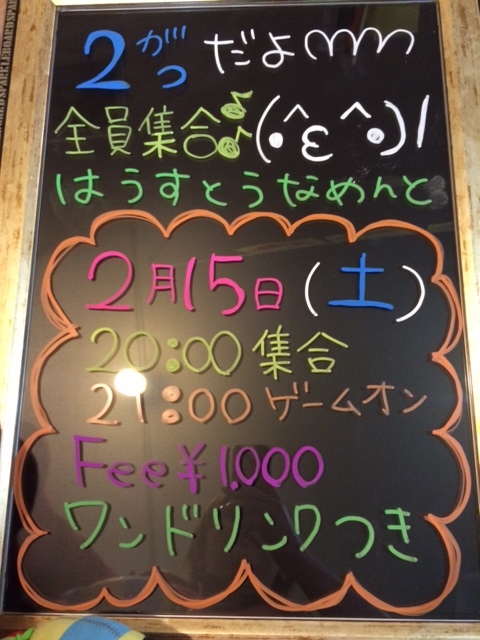 2がつ だよ
全員集合♪♪(・^ε^・)ノ
はうすとうなめんと
2月15日(土)
20:00 集合
21:00 ゲームオン
Fee ¥1,000
ワンドリンクつき